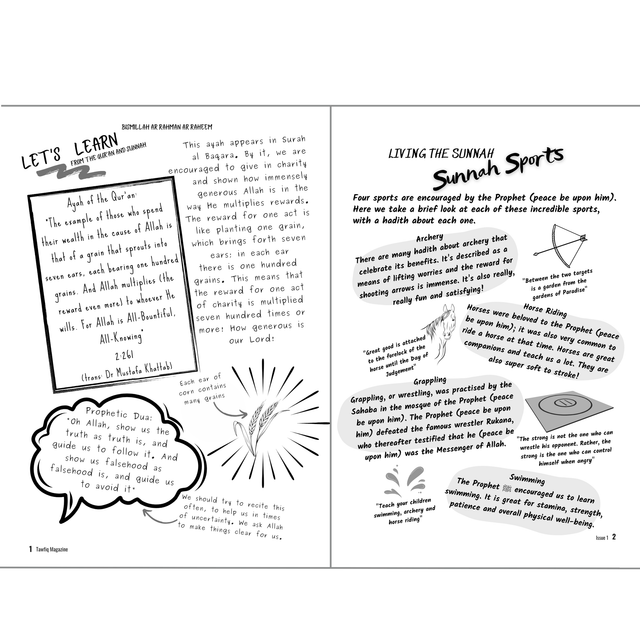 BISMILLAH AR RAHMAN AR RAHEEM
LET'S LEARN
FROM THE QUR'AN AND SUNNAH
Ayah of the Qur'an:
"The example of those who spend
their wealth in the cause of Allah is
that of a grain that sprouts into
seven ears, each bearing one hundred
grains. And Allah multiplies (the
reward even more) to whoever He
wills. For Allah is All-Bountiful,
All-Knowing"
2:261
(trans: Dr Mustafa Khattab)
This ayah appears in Surah
al Baqara. By it, we are
encouraged to give in charity
and shown how immensely
generous Allah is in the
way He multiplies rewards.
The reward for one act is
like planting one grain,
which brings forth seven
ears: in each ear
there is one hundred
grains. This means that
the reward for one act
of charity is multiplied
seven hundred times or
more! How generous is
our Lord!
Each ear of
corn contains
many grains
Prophetic Dua:
"Oh Allah, show us the
truth as truth is, and
guide us to follow it. And
show us falsehood as
falsehood is, and guide us
to avoid it"
We should try to recite this
often, to help us in times
of uncertainty. We ask Allah
to make things clear for us.
1 Tawfiq Magazine
LIVING THE SUNNAH
Sunnah Sports
Four sports are encouraged by the Prophet (peace be upon him).
Here we take a brief look at each of these incredible sports,
with a hadith about each one.
Archery
There are many hadith about archery that
celebrate its benefits. It's described as a
means of lifting worries and the reward for
shooting arrows is immense. It's also really,
really fun and satisfying!
"Between the two targets
is a garden from the
gardens of Paradise"
Horse Riding
Horses were beloved to the Prophet (peace
be upon him); it was also very common to
ride a horse at that time. Horses are great
companions and teach us a lot. They are
also super soft to stroke!
"Great good is attached
to the forelock of the
horse until the Day of
Judgement"
Grappling
Grappling, or wrestling, was practised by the
Sahaba in the mosque of the Prophet (peace
be upon him). The Prophet (peace be upon
him) defeated the famous wrestler Rukana,
who thereafter testified that he (peace be
upon him) was the Messenger of Allah.
"The strong is not the one who can
wrestle his opponent. Rather, the
strong is the one who can control
himself when angry"
Swimming
The Prophet ﷺ encouraged us to learn
swimming. It is great for stamina, strength,
patience and overall physical well-being.
"Teach your children
swimming, archery and
horse riding"
Issue 1 2